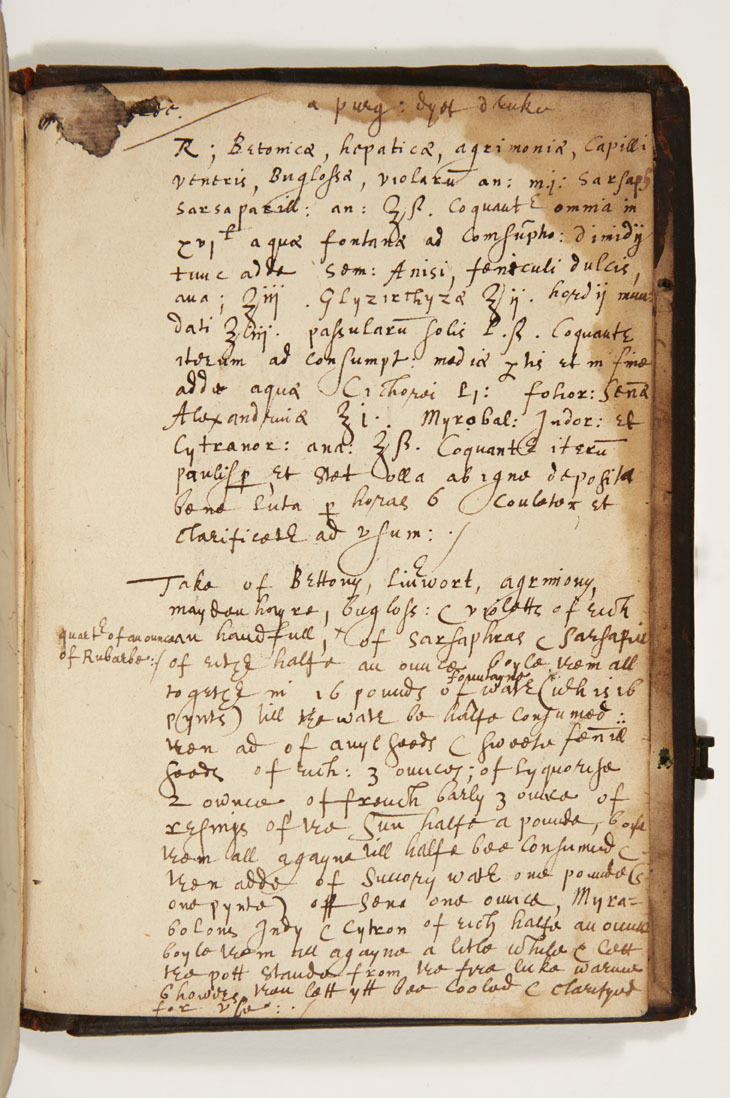 a purg: dyet drinke
R; Betonicæ, hepaticæ, agrimoniæ, Capilli
veneris, Buglossæ, violarū an: mj: Sarsaph
Sarsaparill: an: ʒß. Coquant omnia in
xvjˡ aquæ fontanæ ad Consūpho: dimidij
tunc adde Sem: Anisi, feniculi dulcis,
ana; ʒiij. Glyzirthyzæ ʒij. hordij mun:
dati ʒiij. passularū solis l.ß. Coquante
iterum ad Consumpt: mediæ ptis et in fine
adde aquæ Cichorei lj: folior: Senæ
Alexandrinæ ʒj. Myrobal: Indor: et
Cytranor: ana: ʒß. Coquant iterū
paulisp, et stet olla ab igne deposita
bene luta p horas 6 Couletʳ et
Clarificetʳ ad vsum:
Take of Bettony, liuʳwort, agrimony,
mayden hayre, bugloss: & violetts of eich
an handfull, of Sarsaphras & Sarsapill
quartʳ of an ounce
of Rubarbe:/
of eitħ halfe an ounce boyle them all
togetħ in 16 pounds of fountayne watʳ (wch is 16
pynts) till the watʳ be halfe Consumed::
then ad of anyl seeds & sweete fenill
seeds of eich: 3 ounces; of lyquorise
2 ownce of french barly 3 ounce of
resings of the Sun halfe a pounde, boyle
them all agayne till halfe bee Consumed &
then adde of Succory watʳ one pounde (s
one pynte) off Sene one ounce, Myra=
bolons Indy & Cytron of eich halfe an ounce
boyle them all agayne a litle while & lett
the pott stande from the fire luke warme
6 howers, then lett ytt bee Cooled & Clarifyed
for vse: